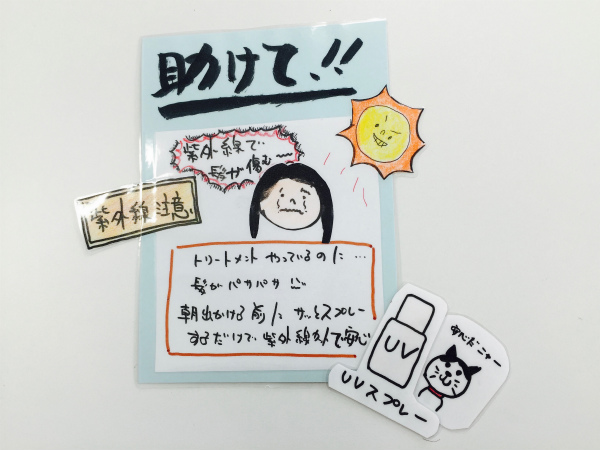 助けて!!
紫外線で…
髪が傷む〜
紫外線注意
トリートメント やっているのに…
髪がパサパサ
朝出かける前に サッとスプレー
するだけで、紫外線カットで安心
UV
UVスプレー
安心だニャー